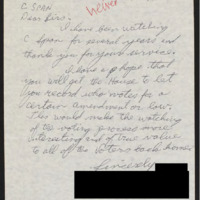 C. SPAN
Dear Sirs:
I have been watching
C Span for several years and
thank you for your service.
I have a hope that
you will get the House to let
you record who votes for a
certain amendment or law.
This would make the watching
of the voting process more
interesting and of true value
to all of the voters back home.
Sincerely